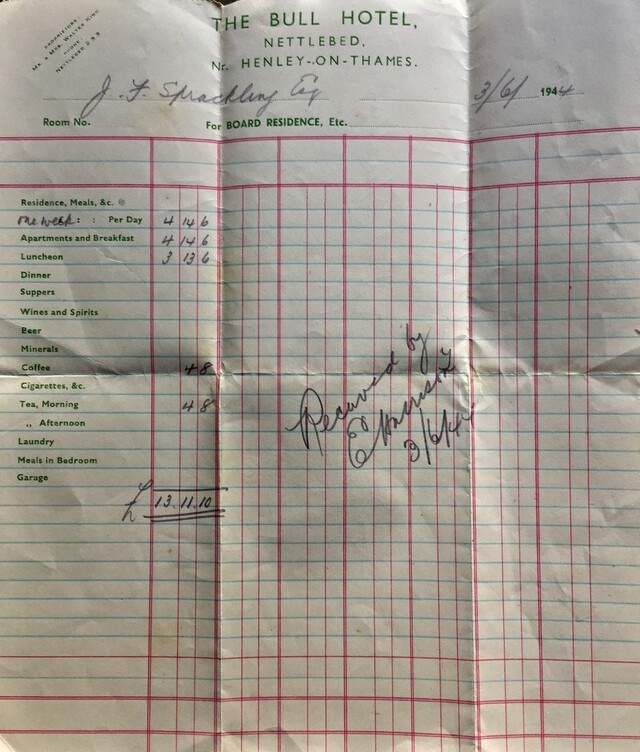 PROPRIETORS:
MR. & MRS. WALTER KING
PHONE:
NETTLEBED
THE BULL HOTEL,
NETTLEBED,
Nr. HENLEY-ON-THAMES.
J. F. Sprackling Esq 3/6/ 1944
Room No. For BOARD RESIDENCE, Etc.
Residence, Meals, &c.
one week: : Per Day 4 14 6
Apartments and Breakfast 4 14 6
Luncheon 3 13 6
Dinner
Suppers
Wines and Spirits
Beer
Minerals
Coffee 4 8
Cigarettes, &c.
Tea, Morning 4 8
„ Afternoon
Laundry
Meals in Bedroom
Garage
£ 13.11.10
Received by
E Harrison
3/6/44